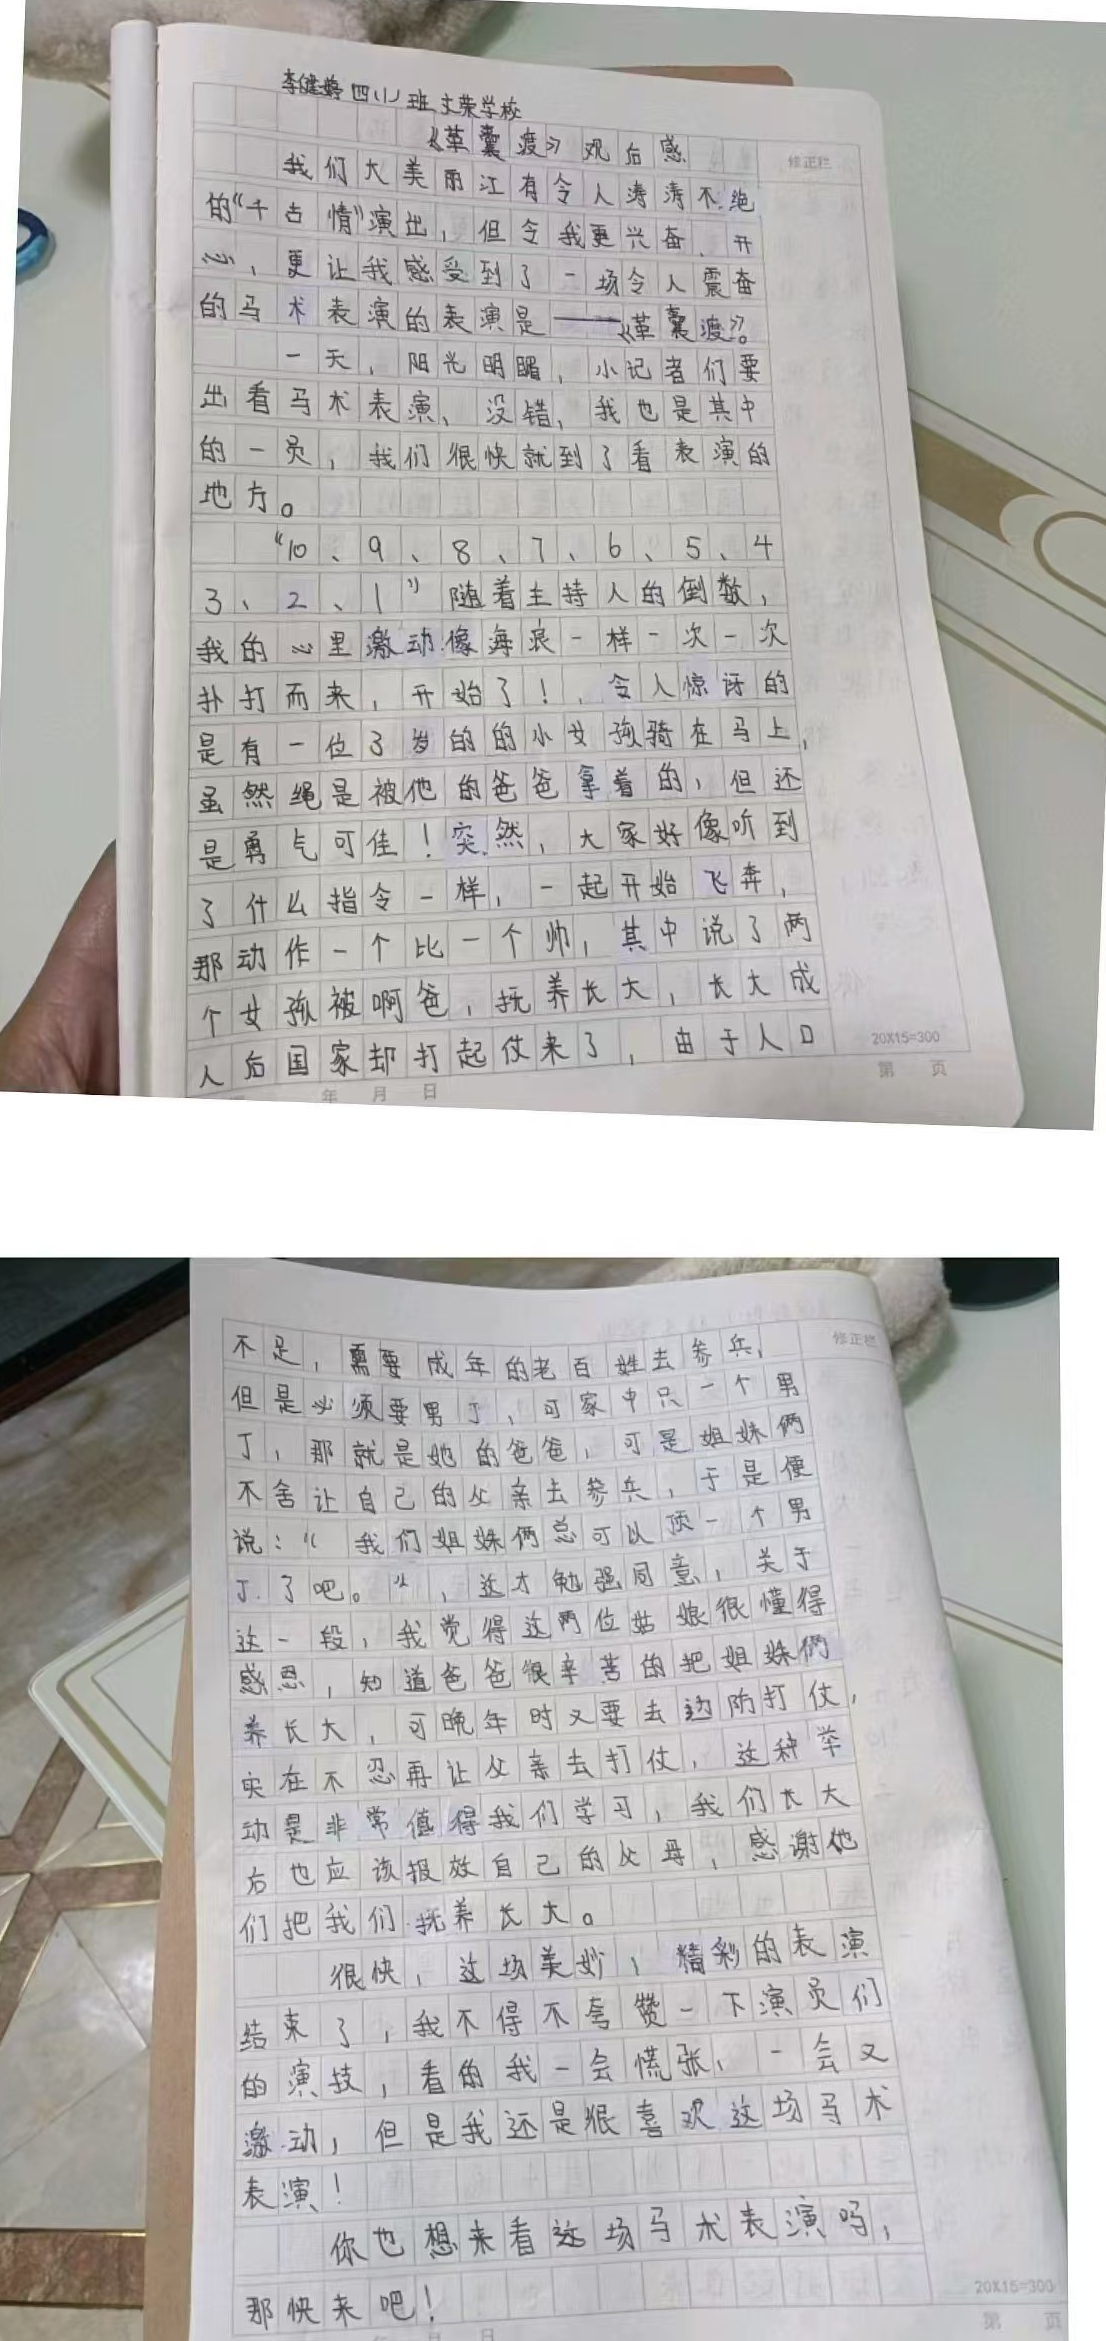 李健婷四(1)班文荣学校
《革囊渡》观后感
修正栏
我们大美丽江有令人涛涛不绝
的“千古情”演出，但令我更兴奋、开
心，更让我感受到了一场令人震奋
的马术表演的表演是——《革囊渡》。
一天，阳光明媚，小记者们要
出看马术表演、没错，我也是其中
的一员，我们很快就到了看表演的
地方。
“10、9、8、7、6、5、4
3、2、1”随着主持人的倒数，
我的心里激动像海浪一样一次一次
扑打而来，开始了！，令人惊讶的
是有一位3岁的的小女孩骑在马上，
虽然绳是被他的爸爸拿着的，但还
是勇气可佳！突然，大家好像听到
了什么指令一样，一起开始飞奔，
那动作一个比一个帅，其中说了两
个女孩被啊爸，抚养长大，长大成
人后国家却打起仗来了，由于人口
20X15=300
年 月 日
第 页
修正栏
不足，需要成年的老百姓去参兵，
但是必须要男丁，可家中只一个男
丁，那就是她的爸爸，可是姐妹俩
不舍让自己的父亲去参兵，于是便
说：“我们姐妹俩总可以顶一个男
丁了吧。”，这才勉强同意，关于
这一段，我觉得这两位姑娘很懂得
感恩，知道爸爸很辛苦的把姐妹俩
养长大，可晚年时又要去边防打仗，
实在不忍再让父亲去打仗，这种举
动是非常值得我们学习，我们长大
后也应该报效自己的父母，感谢他
们把我们抚养长大。
很快，这场美妙、精彩的表演
结束了，我不得不夸赞一下演员们
的演技，看的我一会慌张、一会又
激动，但是我还是很喜欢这场马术
表演！
你也想来看这场马术表演吗，
那快来吧！
20X15=300
年 月 日
第 页